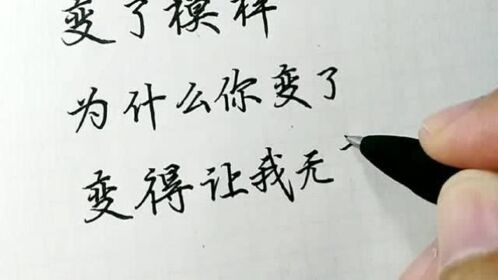 变了模样
为什么你变了
变得让我无